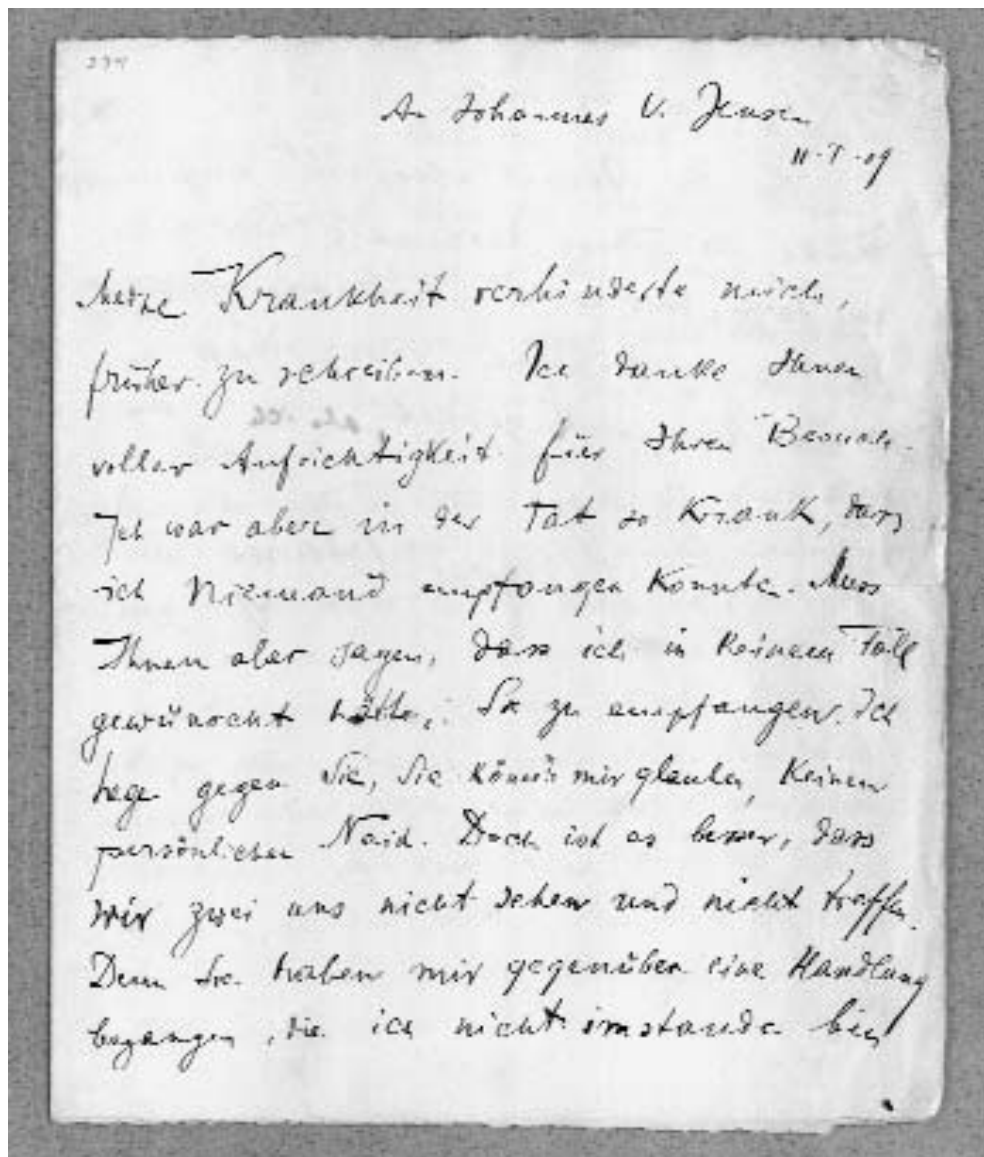 234
An Johannes V. Jensen
11·I·09
Meine Krankheit verhinderte mich,
früher zu schreiben. Ich danke Ihnen
voller Aufrichtigkeit für Ihren Besuch.
Ich war aber in der Tat so Krank, dass
ich Niemand empfangen Konnte. Muss
Ihnen aber sagen, dass ich in Keinem Fall
gewünscht hätte, Sie zu empfangen. Ich
hege gegen Sie, Sie können mir glauben, Keinen
persönlichen Neid. Doch ist es besser, dass
wir zwei uns nicht sehen und nicht treffen.
Denn Sie haben mir gegenüber eine Handlung
begangen, die ich nicht imstande bin